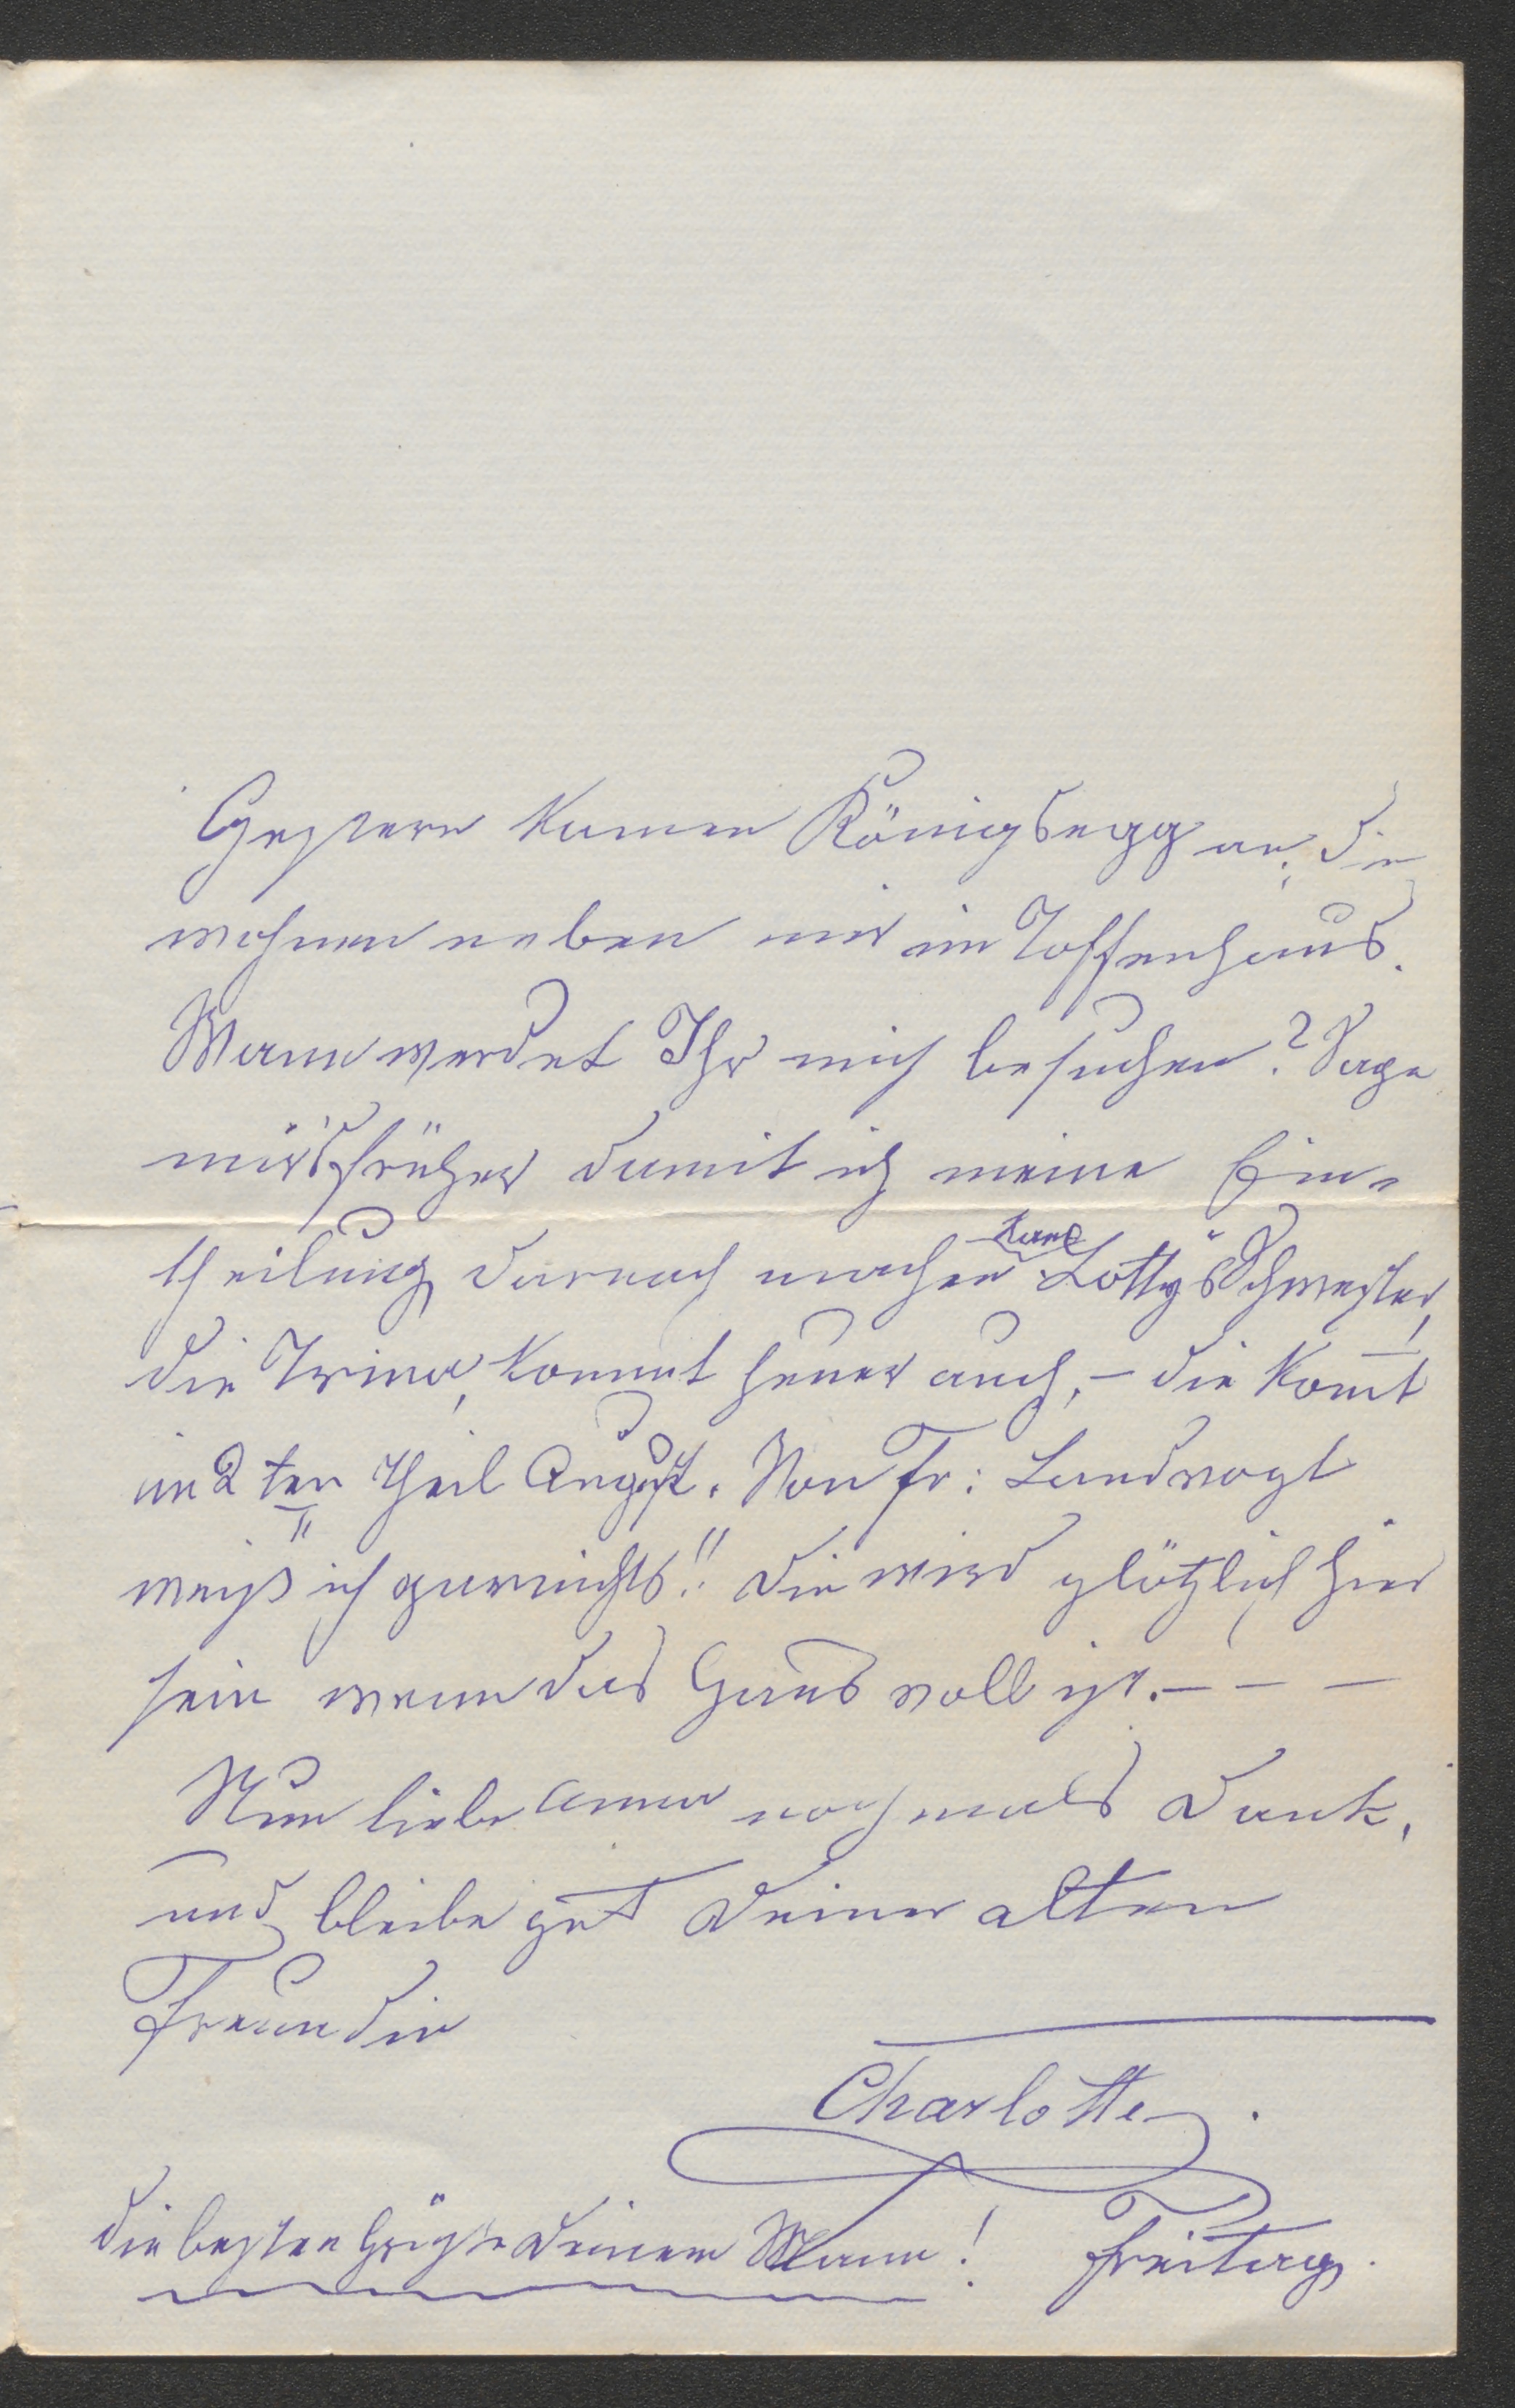 Gestern kamen Königsegg an, die
wohnen neben mir im Toffenhaus.
Wann werdet Ihr mich besuchen? Sage
mir's früher damit ich meine Ein-
theilung darnach machen kann. Lotty's Schwester,
die Irma, kommt heuer auch, – die kom̅t
im 2ten Theil August. Von Fr: Landvogt
weiß ich garnichts!! Die wird plötzlich hier
sein wenn das Haus voll ist. – – –
Nun liebe Anna nochmals Dank,
und bleibe gut Deiner alten
Freundin
Charlotte.
Die besten Grüße Deinem Mann! Freitag.